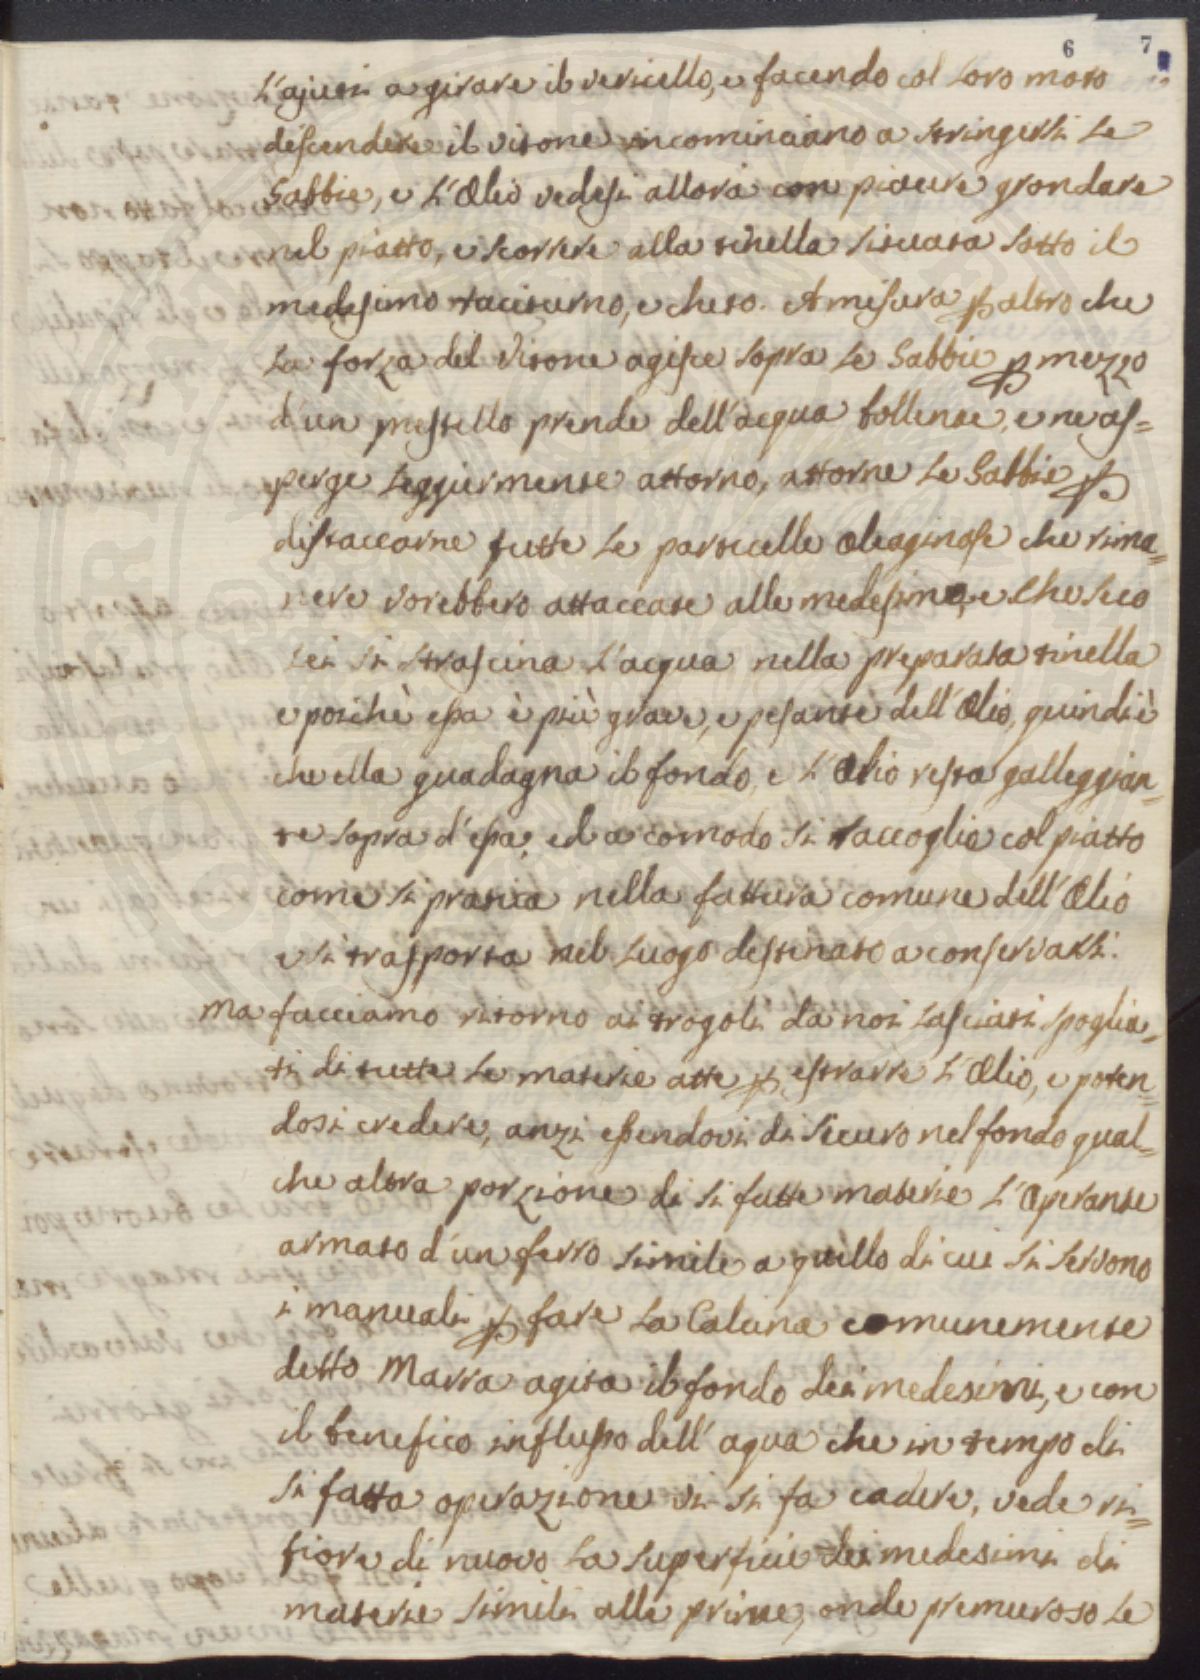 6 7
L'ajuti a girare il vericello, e facendo col loro moto
descendere il vitone incominciano a stringersi le
Sabbie, e l'Olio vedesi allora con piacere grondare
nel piatto, e scorrere alla tinella situata sotto il
medesimo taciturno, e cheto. A misura ꝑ altro che
la forza del Vitone agisce sopra le Sabbie ꝑ mezzo
d'un mestello prende dell'acqua bollente, e ne as=
perge leggiermente attorno, attorno le Sabbie ꝑ
distaccarne tutte le particelle oleaginose che rima=
nere vorebbero attaccate alle medesime, e che seco
lei si strascina l'acqua nella preparata tinella
e poichè essa è più grave, e pesante dell'Olio, quindi è
che ella guadagna il fondo, e l'Olio resta galleggian=
te sopra d'essa, ed a comodo si raccoglie col piatto
come si pratica nella fattura comune dell'Olio
e si trasporta nel luogo destinato a conservarsi.
Ma facciamo ritorno ai trogoli da noi lasciati spoglia=
ti di tutte le materie atte ꝑ estrarre l'Olio, e poten=
dosi credere, anzi essendovi di sicuro nel fondo qual=
che altra porzione di si fatte materie l'Operante
armato d'un ferro simile a quello di cui si servono
i manuali ꝑ fare la Calcina comunemente
detto Marra agita il fondo dei medesimi, e con
il benefico influsso dell'aqua che in tempo di
si fatta operazione vi si fa cadere, vede ri=
fiore di nuovo la superficie dei medesimi di
materie simili alle prime, onde premuroso le